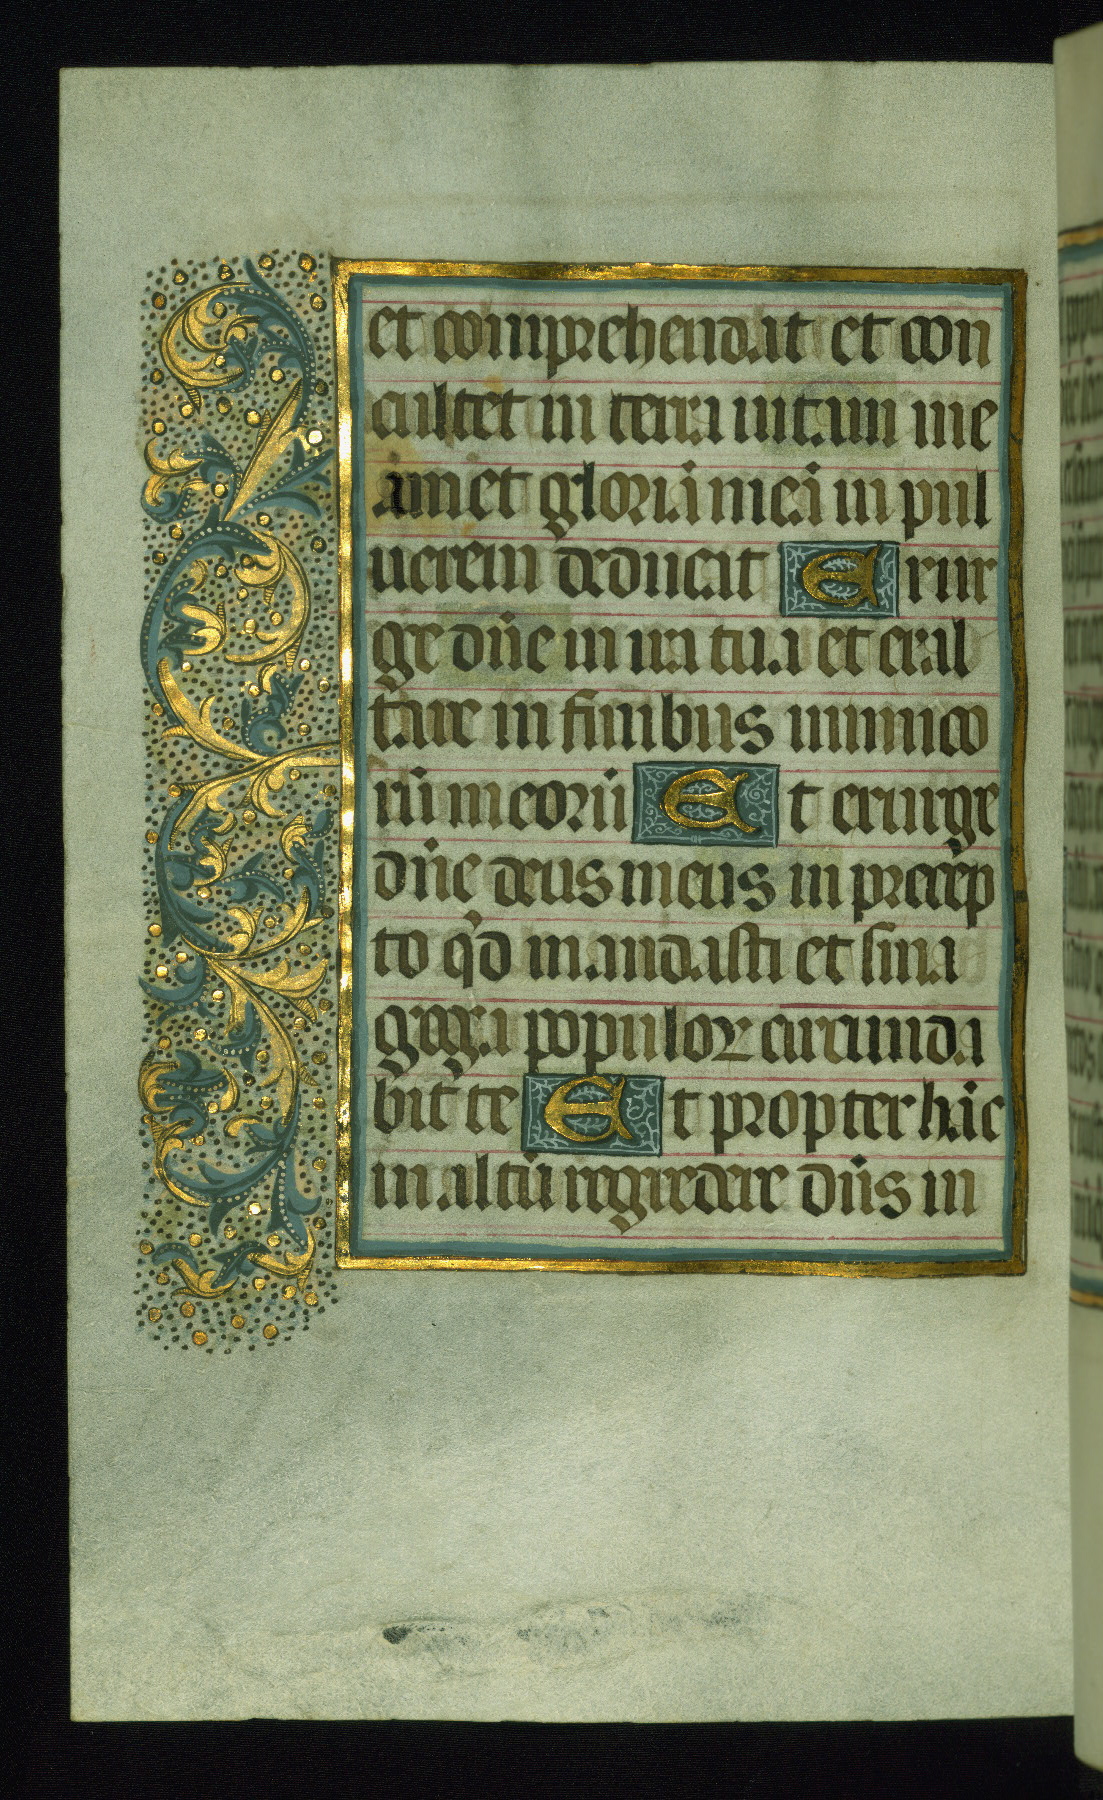 et comprehendat et con
culcet in terra uitam me
am et gloriã meã in pul
uerem deducat Exur
ge dñe in ira tua et exal
tare in finibus inimico
rũ meorũ Et exurge
dñe deus meus in precep
to qd mandasti et sina
goga populoꝝ circunda
bit te Et propter hãc
in altũ regredere dñs in